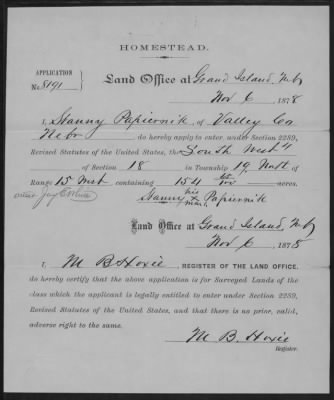 HOMESTEAD.
APPLICATION
No 8191
Land Office at Grand Island, Neb
Nov 6 1878
I, Stanny Papiernik, of Valley Co
Nebr do hereby apply to enter, under Section 2289,
Revised Statutes of the United States, the South West 4
of Section 18 in Township 19 North of
Range 15 West containing 154 acres.
his
Stanny + Papiernik
mark
Land Office at Grand Island, Nb
Nov 6, 1878
I, M B Hoxie, REGISTER OF THE LAND OFFICE,
do hereby certify that the above application is for Surveyed Lands of the
class which the applicant is legally entitled to enter under Section 2289,
Revised Statutes of the United States, and that there is no prior, valid,
adverse right to the same.
M. B. Hoxie
Register.